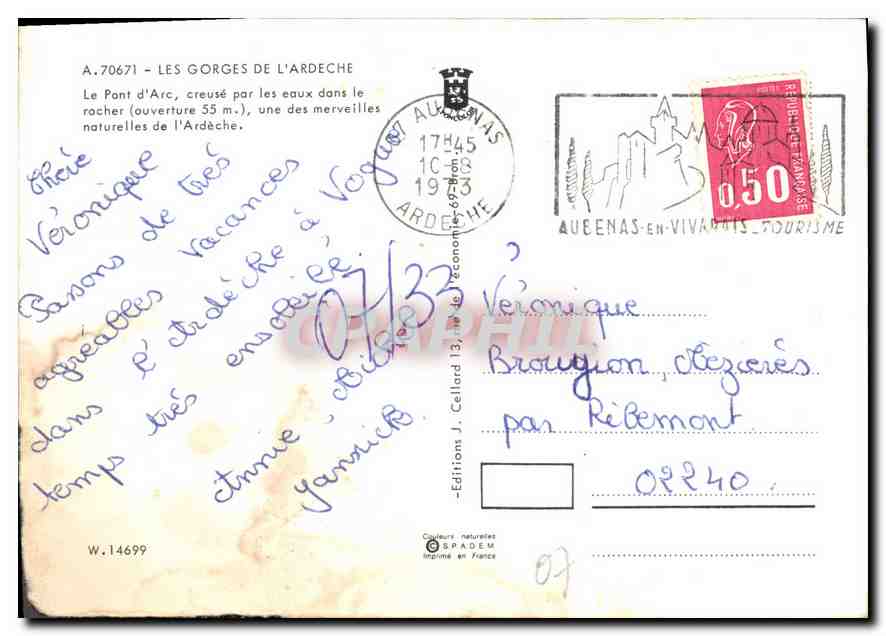 A.70671 - LES GORGES DE L'ARDECHE
Le Pont d'Arc, creusé par les eaux dans le
rocher (ouverture 55 m.), une des merveilles
naturelles de l'Ardèche.
07 AUBENAS
17H45
10-8
1973
ARDECHE
AUBENAS-EN-VIVARAIS_TOURISME
POSTES
REPUBLIQUE FRANÇAISE
0,50
Chère
Véronique
Passons de très
agréables vacances
dans l'Ardèche à Vogüé
temps très ensoleillé
Annie, Michel
Yannick.
07/33
CPAPHIL
-Editions J. Cellard 13, rue de l'économie-69-Bron-
Véronique
Brougion, Mézières
par Ribemont
02240.
W.14699
Couleurs naturelles
© S.P.A.D.E.M
Imprimé en France
07